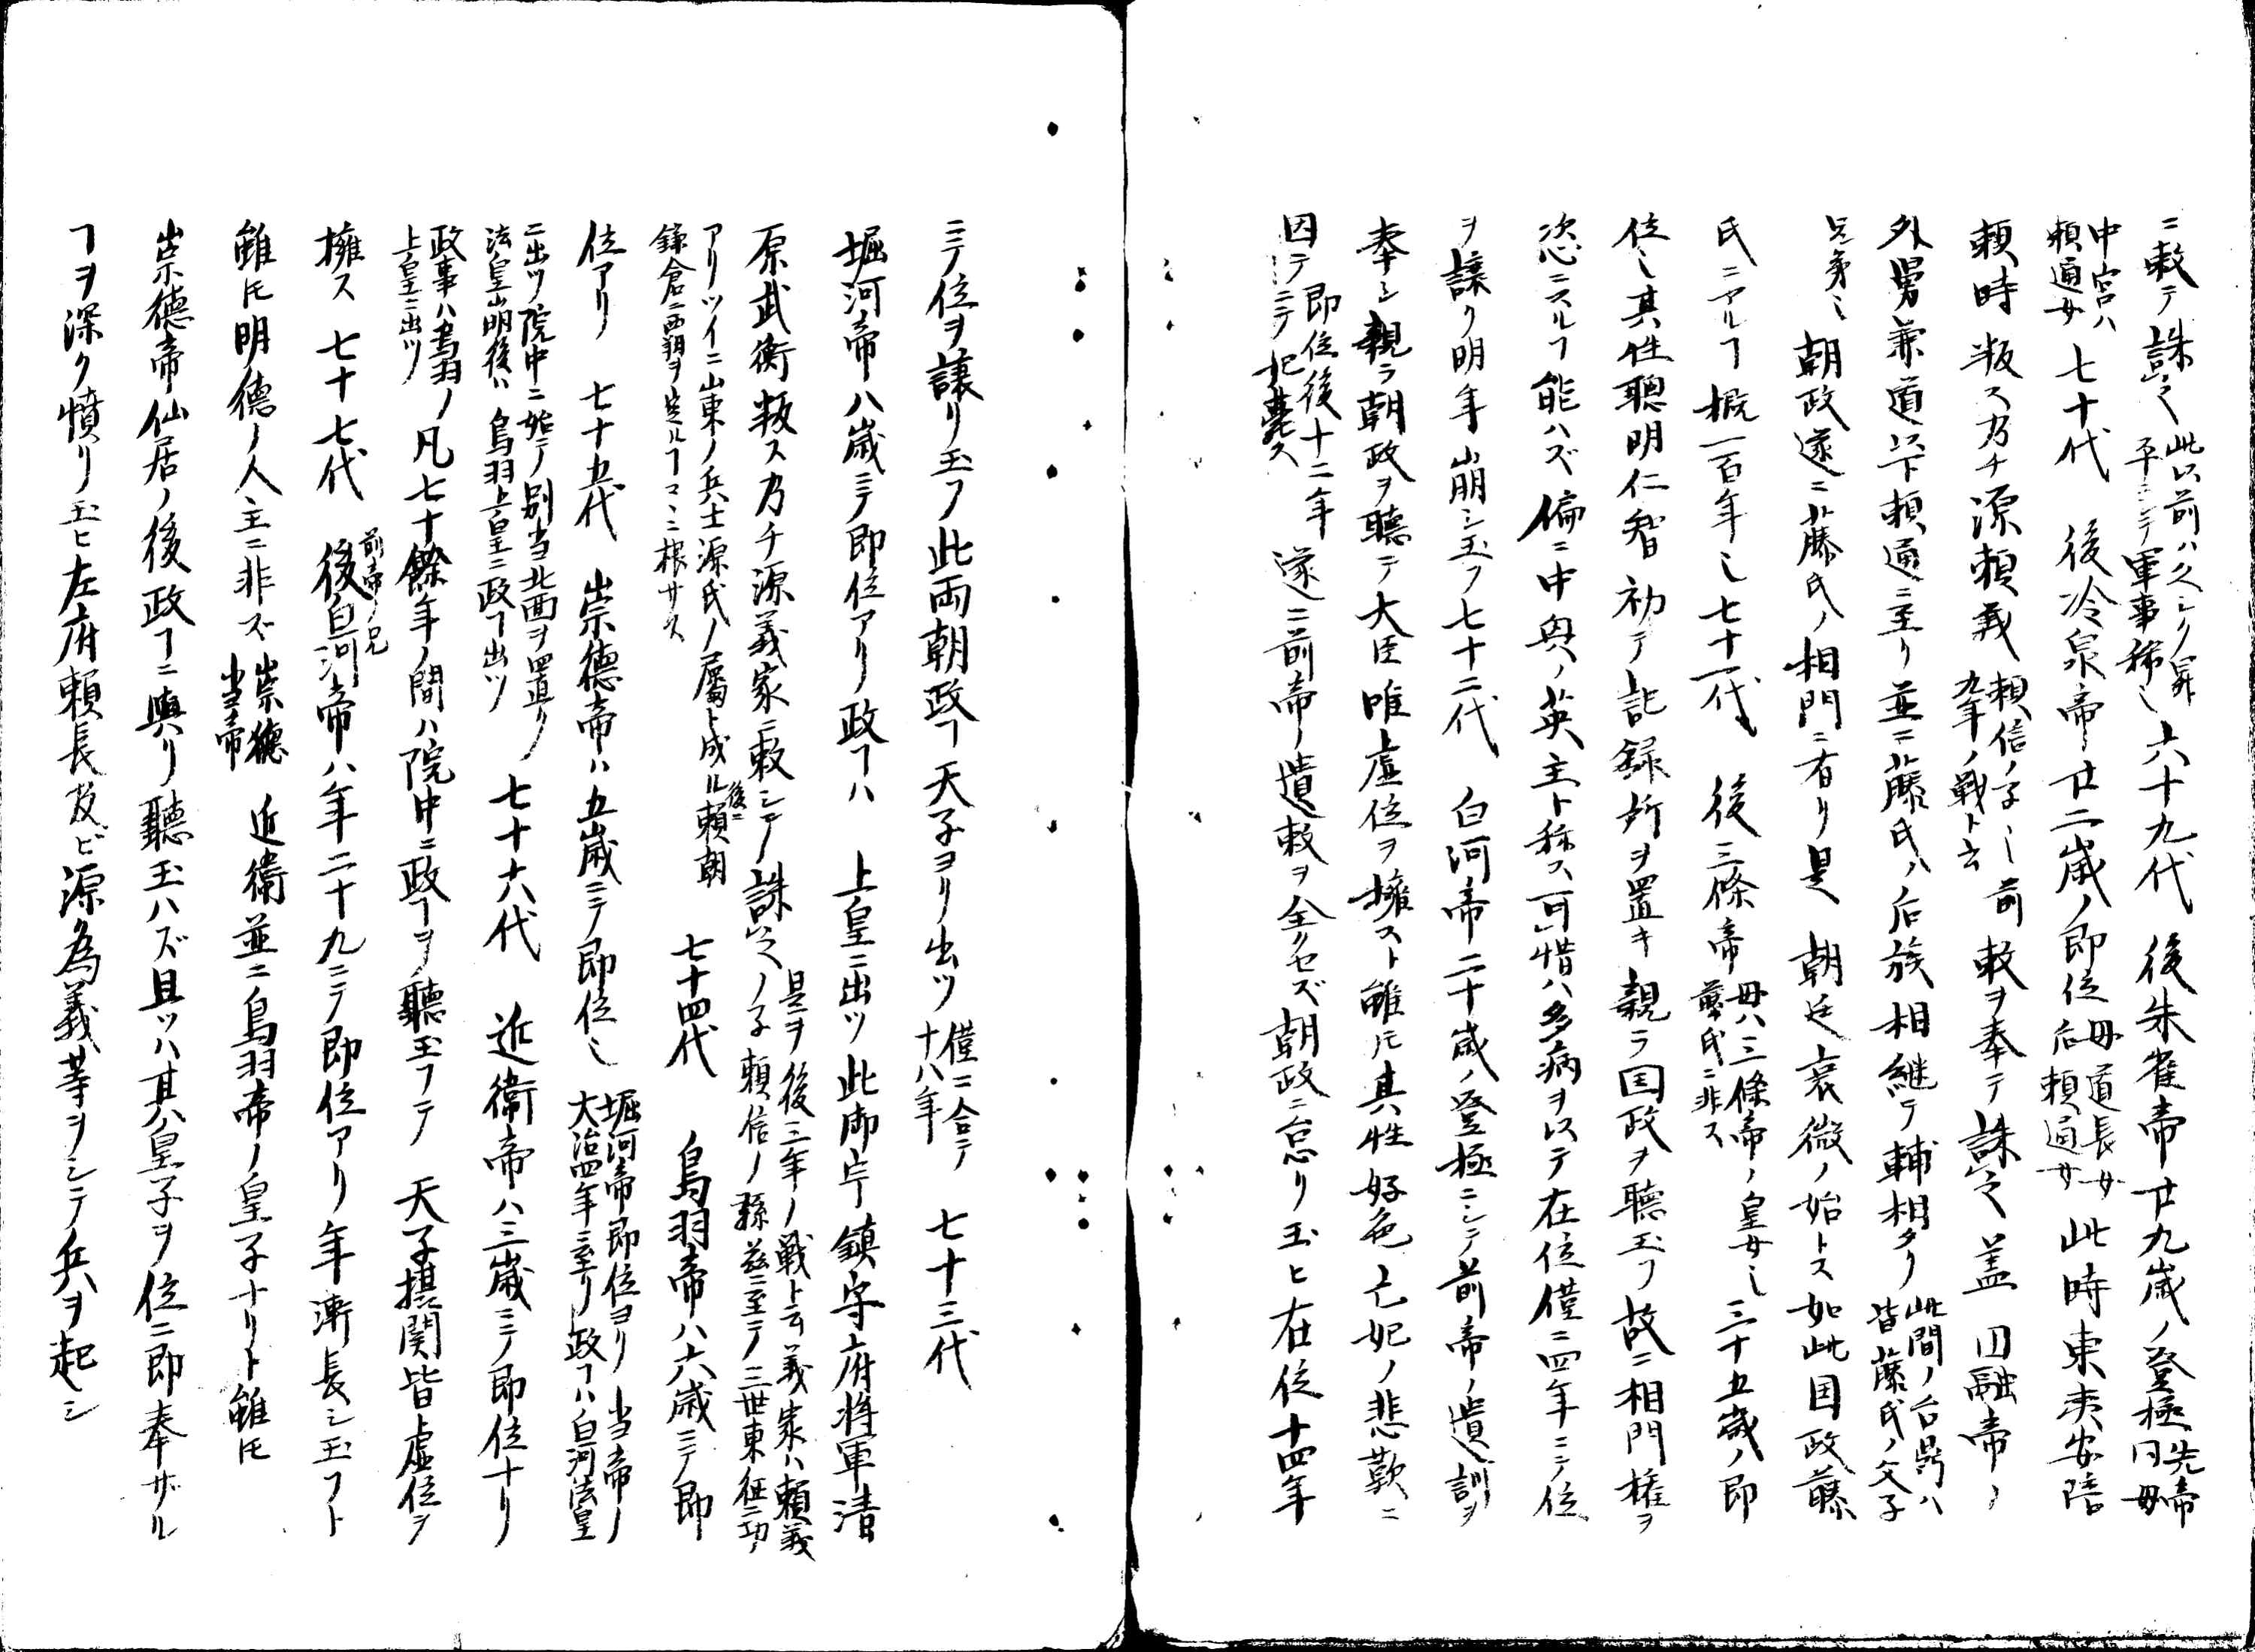 ニ敕テ誅之此以前ハ久シク昇平ニテ軍事稀ニ六十九代　後朱雀帝廿九歳ノ登極先帝同母
中宮ハ頼通女七十代　後冷泉帝廿二歳ノ即位母道長女后頼通女此時東夷安陪
頼時叛ス乃チ源頼義頼信ノ子〆前九年ノ戦ト云敕ヲ奉テ誅之盖円融帝ノ
外舅兼道以下頼通ニ至リ並ニ藤氏ハ后族相継テ輔相タリ此間ノ台鼎ハ皆藤氏ノ父子
兄弟〆朝政遂ニ藤氏ノ相門ニ有リ是　朝廷衰微ノ始トス如此国政藤
氏ニアルヿ概一百年〆七十一代　後三條帝母ハ三條帝ノ皇女〆藤氏ニ非ス三十五歳ノ即
位〆其性聰明仁智初テ記録所ヲ置キ親ラ国政ヲ聴玉フ故ニ相門権ヲ
恣ニスルヿ能ハズ偏ニ中興ノ英主ト称ス可惜ハ多病ヲ以テ在位僅ニ四年ニテ位
ヲ譲ク明年崩シ玉フ七十二代　白河帝二十歳ノ登極ニシテ前帝ノ遺訓ヲ
奉シ親ラ朝政ヲ聴テ大臣唯虚位ヲ擁スト雖氏其性好色亡妃ノ悲歎ニ
因テ即位後十二年ニテ妃薨ス遂ニ前帝ノ遺敕ヲ全クセズ朝政ニ怠リ玉ヒ在位十四年
ニテ位ヲ譲リ玉フ此両朝政ヿ天子ヨリ出ツ僅ニ合テ十八年　七十三代
堀河帝八歳ニテ即位アリ政ヿハ　上皇ニ出ツ此御宇鎮守府将軍清
原武衡叛ス乃チ源義家ニ敕シテ誅之是ヲ後三年ノ戦ト云義家ハ頼義ノ子頼信ノ孫茲ニ至テ三世東ノ征ニ功
アリツイニ山東ノ兵士源氏ノ属ト成ル後ニ頼朝鎌倉ニ覇ヲ定ルヿコヽニ根サス　七十四代　鳥羽帝ハ六歳ニテ即
位アリ　七十五代　崇徳帝ハ五歳ニテ即位〆堀河帝即位ヨリ当帝ノ大治四年ニ至リ政ヿハ白河法皇
ニ出ツ院中ニ始テ別当北面ヲ置ク法皇崩後ハ鳥羽上皇ニ政ヿ出ツ　七十六代　近衛帝ハ三歳ニテ即位ナリ
政事ハ鳥羽ノ上皇ニ出ツ凡七十餘年ノ間ハ院中ニ政ヿヲ聴玉フテ　天子摂関皆虚位ヲ
擁ス　七十七代　後白河帝前帝ノ兄ハ年二十九ニテ即位アリ年漸長シ玉フト
雖氏明徳ノ人主ニ非ズ崇徳当帝　近衛並ニ鳥羽帝ノ皇子ナリト雖氏
崇徳帝仙居ノ後政ヿニ與リ聴玉ハズ且ツハ其皇子ヲ位ニ即奉ザル
ヿヲ深ク憤リ玉ヒ左府頼長及ビ源為義等ヲシテ兵ヲ起シ